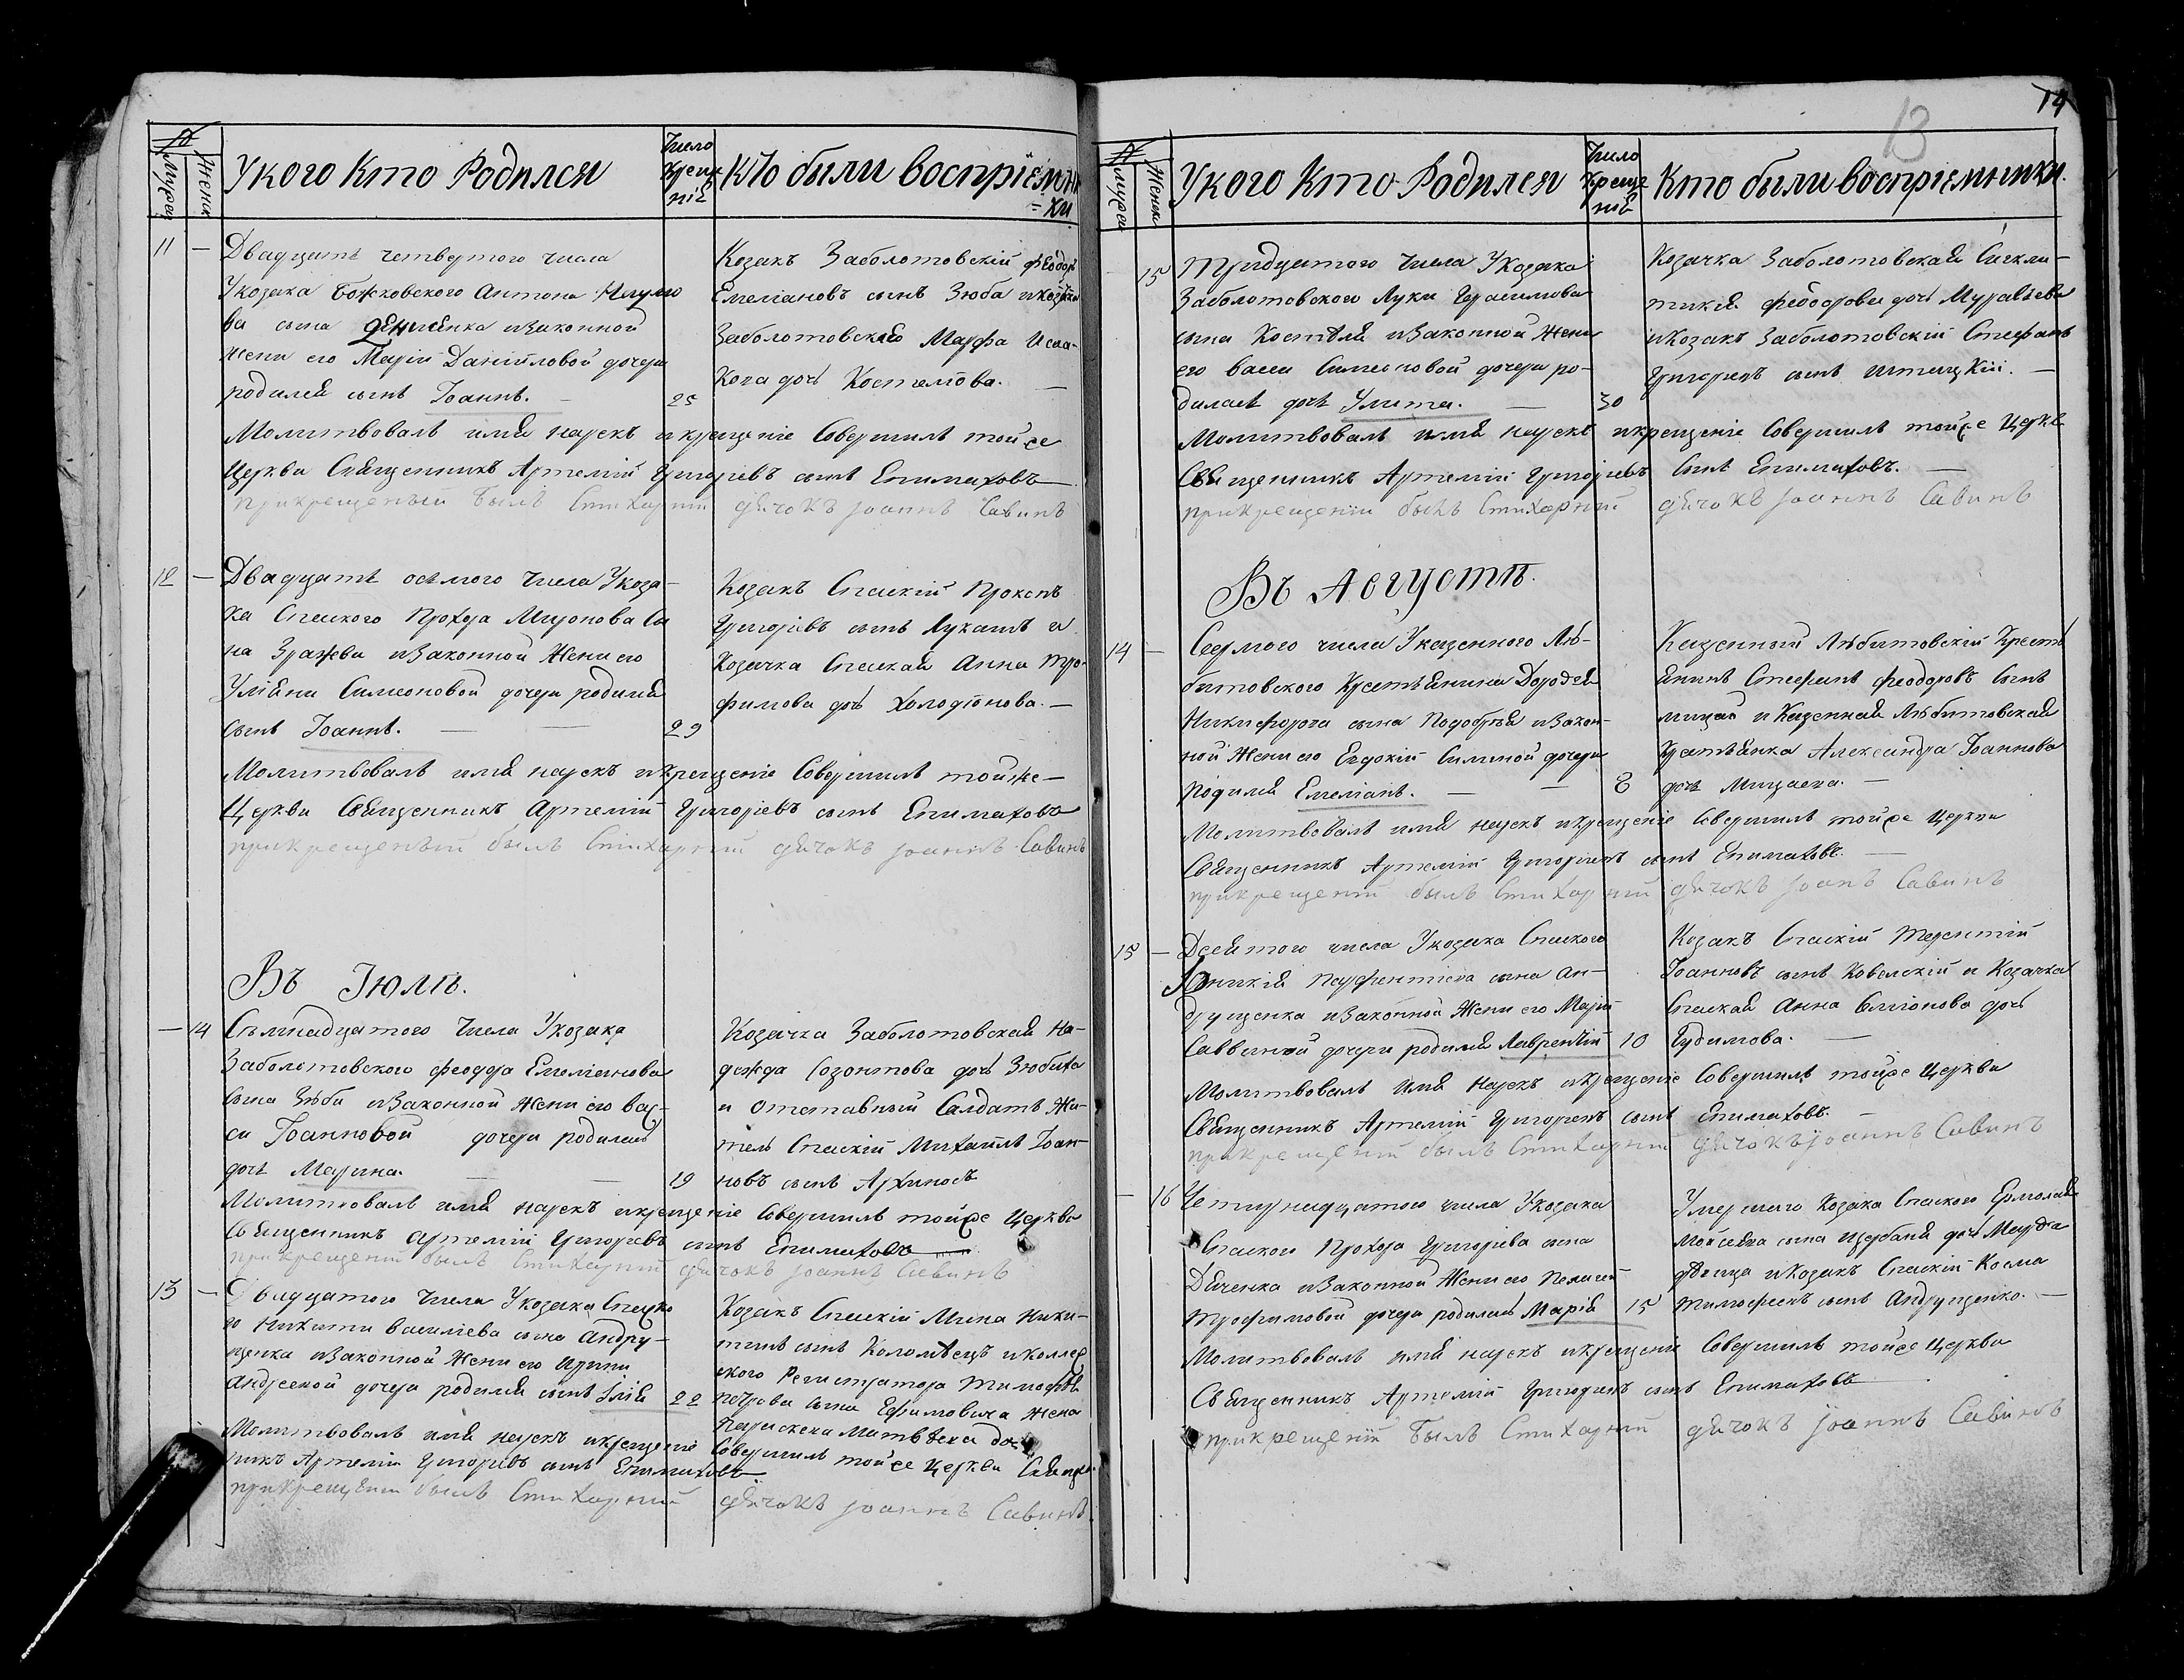 №
Мужеи
Женик
У кого Кто Родился
Число Крещеніѣ
Кто были воспріемники
11 — Двадцать четвертого числа
У козака Божковского Антона Наумо
ва сына Денисенка изаконной
жени его Марій Даніиловой дочери
родился сынъ Іоаннъ. — 25
Козакъ Заболотовскій Феодоръ
Емеліановъ сынъ Зюба икозачка
Заболотовская Марфа Исаа-
кова дочь Костелѣва. —
Молитвовалъ имя нарекъ икрещеніе Совершилъ тойже
Церкви Священникъ Артемій Григоріевъ сынъ Епимаховъ
прикрещеныи былъ Стихарный дячокъ Іоаннъ Савинъ
12 — Двадцать осьмого числа У коза-
ка Спаского Прохора Миронова Сы
на Зражева изаконной Жени его
Уліяни Симеоновой дочери родился
сынъ Іоаннъ. — 29
Козакъ Спаскій Прокопъ
Григоріевъ сынъ Лукашъ и
Козачка Спаская Анна Тро-
фимова дочь Холодіонова. —
Молитвовалъ имя нарекъ икрещеніе Совершилъ тойже —
Церкви Священникъ Артемій Григоріевъ сынъ Епимаховъ
прикрещеныи былъ Стихарный дячокъ Іоаннъ Савинъ
Въ Іюлѣ.
— 14 Съмнадцатого Числа У козака
Заболотовского Феодора Емеліанова
сына Зюби изаконной Жени его Вас-
си Іоанновой дочери родилась
дочь Марина. — 19
Козачка Заболотовская На-
дежда Созонтова дочь Зюбина
и отставный Салдатъ Жи-
тель Спаскій Михаилъ Іоан-
новъ сынъ Архиповъ
Молитвовалъ имя нарекъ икрещеніе Совершилъ тойже Церкви
Священникъ Артемій Григоріевъ сынъ Епимаховъ
прикрещеніи былъ Стихарный дячокъ Іоаннъ Савинъ
13 — Двадцатого Числа У козака Спаско
го Никити Василіева сына Андру-
щенка изаконной Жени его Ирины
Андреевой дочери родился сынъ Ілія 22
Козакъ Спаскій Мина Ники-
тинъ сынъ Коломѣецъ иколлеж
ского Регистратора Тимофея
Петрова сына Ефимовича жена
Параскева Матвѣева дочь
Молитвовалъ имя нарекъ икрещеніе Совершилъ тойже Церкви Священ
никъ Артемій Григоріевъ сынъ Епимаховъ
прикрещеніи былъ Стихарный дячокъ Іоаннъ Савинъ
14
13
№
Мужеи
Женик
У кого Кто Родился
Число Крещеніѣ
Кто были воспріемники.
15 Тридцатого Числа У козака
Заболотовского Луки Герасимова
сына Костѣля изаконной Жени
его Васси Симеоновой дочери ро-
дилась дочь Улита. — 30
Козачка Заболотовская Сигкли-
тикія Феодорова дочь Муравьева
икозакъ Заболотовскій Стефанъ
Григоріевъ сынъ . —
Молитвовалъ имя нарекъ икрещеніе Совершилъ тойже Церкв
Священникъ Артемій Григоріевъ Сынъ Епимаховъ. —
прикрещеніи былъ Стихарный дячокъ Іоаннъ Савинъ
Въ Августѣ.
14 — Седмого числа У казенного Лю-
битовского Крестьянина Дорофея
Никифорова сына Подобрѣя изакон-
ной Жени его Евдокіи дочери
Родился Емеліанъ. — — 8
Казенный Любитовскій Кресть
янинъ Стефанъ Феодоровъ сынъ
Мицай и Казенная Любитовская
Крестьянка Александра Іоаннова
дочь Мицаева. —
Молитвовалъ имя нарекъ икрещеніе Совершилъ тойже Церкви
Священникъ Артемій Григоріевъ сынъ Епимаховъ. —
прикрещеніи былъ Стихарный дячокъ Іоанъ Савинъ
15 — Десятого числа У козака Спаского
Іоникія Парфентіева сына Ан-
друщенка изаконной Жени его Маріи
Саввиной дочери родился Лаврентій 10
Козакъ Спаскій Терентій
Іоанновъ сынъ Ковалскій и Козачка
Спаская Анна дочь
Гудимова. —
Молитвовалъ имя нарекъ икрещеніе Совершилъ тойже Церкви
Священникъ Артемій Григоріевъ сынъ Епимаховъ. —
прикрещеніи былъ Стихарный дячокъ Іоаннъ Савинъ
— 16 Четирнадцатого числа У козака
Спаского Прохора Григоріева сына
Дяченка изаконной Жени его Пелагеи
Трофимовой дочери родилась Марія 15
Умершаго Козака Спаского Ермолая
Мойсеева сына Щербаня дочь Марфа
дѣвица икозакъ Спаскій Косма
Тимофеевъ сынъ Андрущенко. —
Молитвовалъ имя нарекъ икрещеніе Совершилъ тойже Церкви
Священникъ Артемій Григоріевъ сынъ Епимаховъ
прикрещеніи былъ Стихарный дячокъ Іоаннъ Савинъ